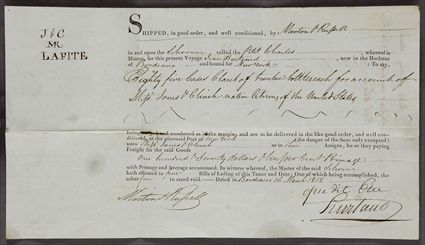 J & C
M.
LAFITE
SHIPPED, in good order, and well conditioned, by Morton & Russell
in and upon the Schooner called the Petit Charles, whereof is
Master, for this present Voyage Jean, now in the Harbour
of Bordeaux and bound for New York To say,
Eighty five Cases Claret of twelve bottles each for account of
Mess Jones & Clinch native Citizens of the United States
being and numbered as in the margin and are to be delivered in the like good order, and well conditioned,
at the aforesaid Port of New York (the danger of the Seas only excepted)
unto Mess Jones & Clinch or to their Assigns, he or they paying
Freight for the said Goods
One hundred & Seventy dollars &
with Primage and Average accustomed. In witness whereof, the Master of the said Schooner
hath affirmed to Bills of Lading of this Tenor and Date; One of which being accomplished, the
other to stand void. Dated in Bordeaux 26 March 1812
Morton & Russell
que dit être